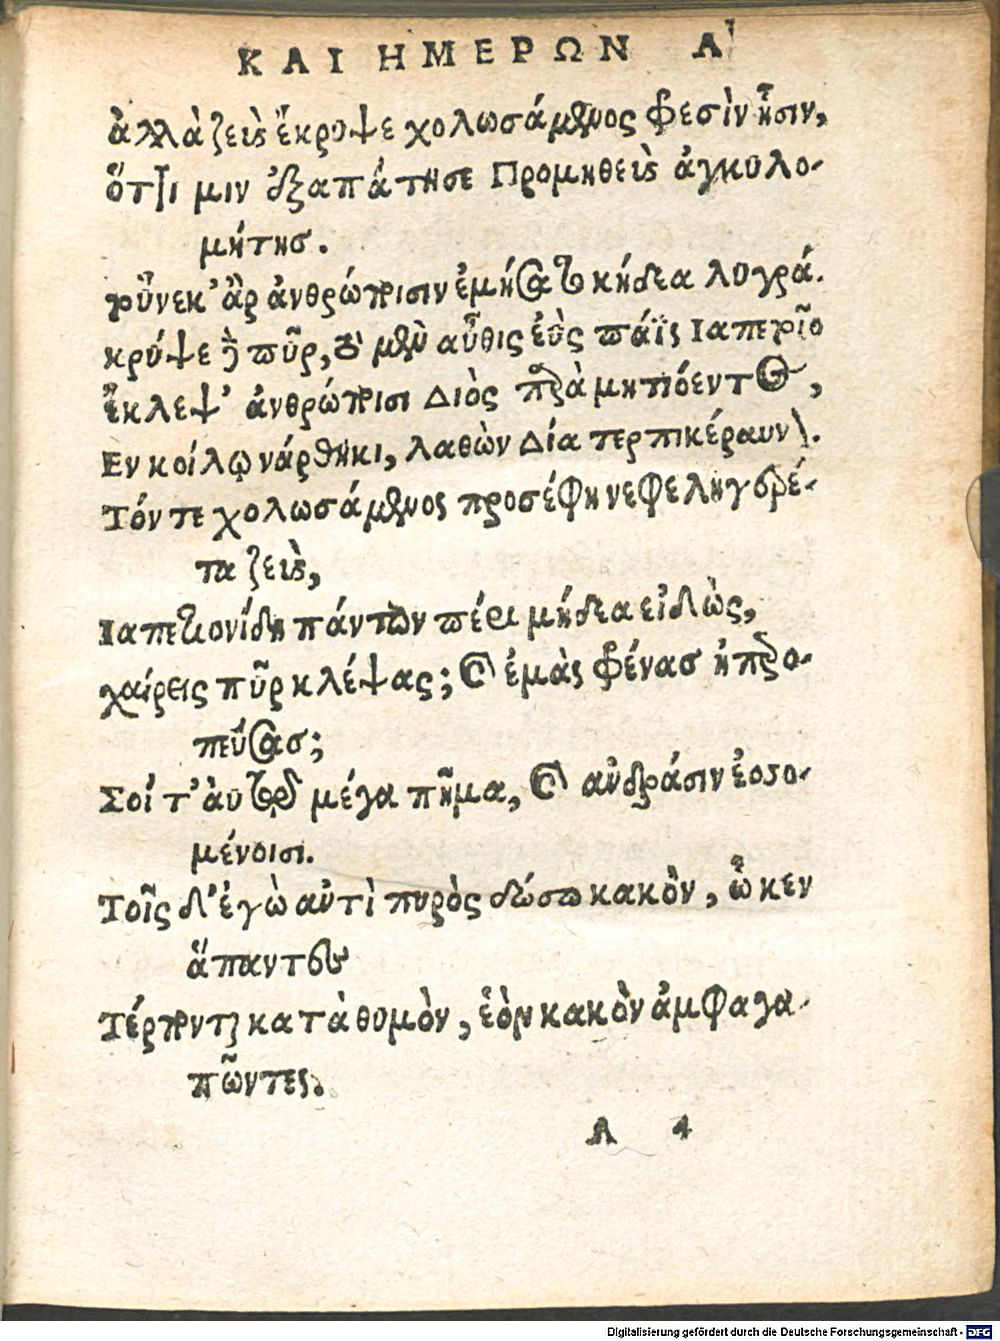 ΚΑΙ ΗΜΕΡΩΝ Α
ἀλλὰ ζεὺς ἔκρυψε χολωσάμενος φρεσὶν ᾗσιν,
ὅττι μιν ἐξαπάτησε Προμηθεὺς ἀγκυλο-
μήτης.
τοὔνεκ' ἂρ ἀνθρώποισιν ἐμήσατο κήδεα λυγρά.
κρύψε δὲ πῦρ, τὸ μὲν αὖθις ἐῢς πάϊς Ιαπετοῖο
ἔκλεψ' ἀνθρώποισι Διὸς παρὰ μητιόεντος,
Εν κοίλῳ νάρθηκι, λαθὼν Δία τερπικέραυνον.
Τόν τε χολωσάμενος προσέφη νεφεληγερέ-
τα ζεὺς,
Ιαπετιονίδη πάντων πέρι μήδεα εἰδὼς,
χαίρεις πῦρ κλέψας; καὶ ἐμὰς φρένας ἠπερο-
πεύσας;
Σοί τ' αὐτῷ μέγα πῆμα, καὶ ἀνδράσιν ἐσσο-
μένοισι.
Τοῖς δ' ἐγὼ ἀντὶ πυρὸς δώσω κακὸν, ᾧ κεν
ἅπαντες
Τέρπωνται κατὰ θυμὸν, ἑὸν κακὸν ἀμφαγα-
πῶντες.
Α 4
Digitalisierung gefördert durch die Deutsche Forschungsgemeinschaft - DFG